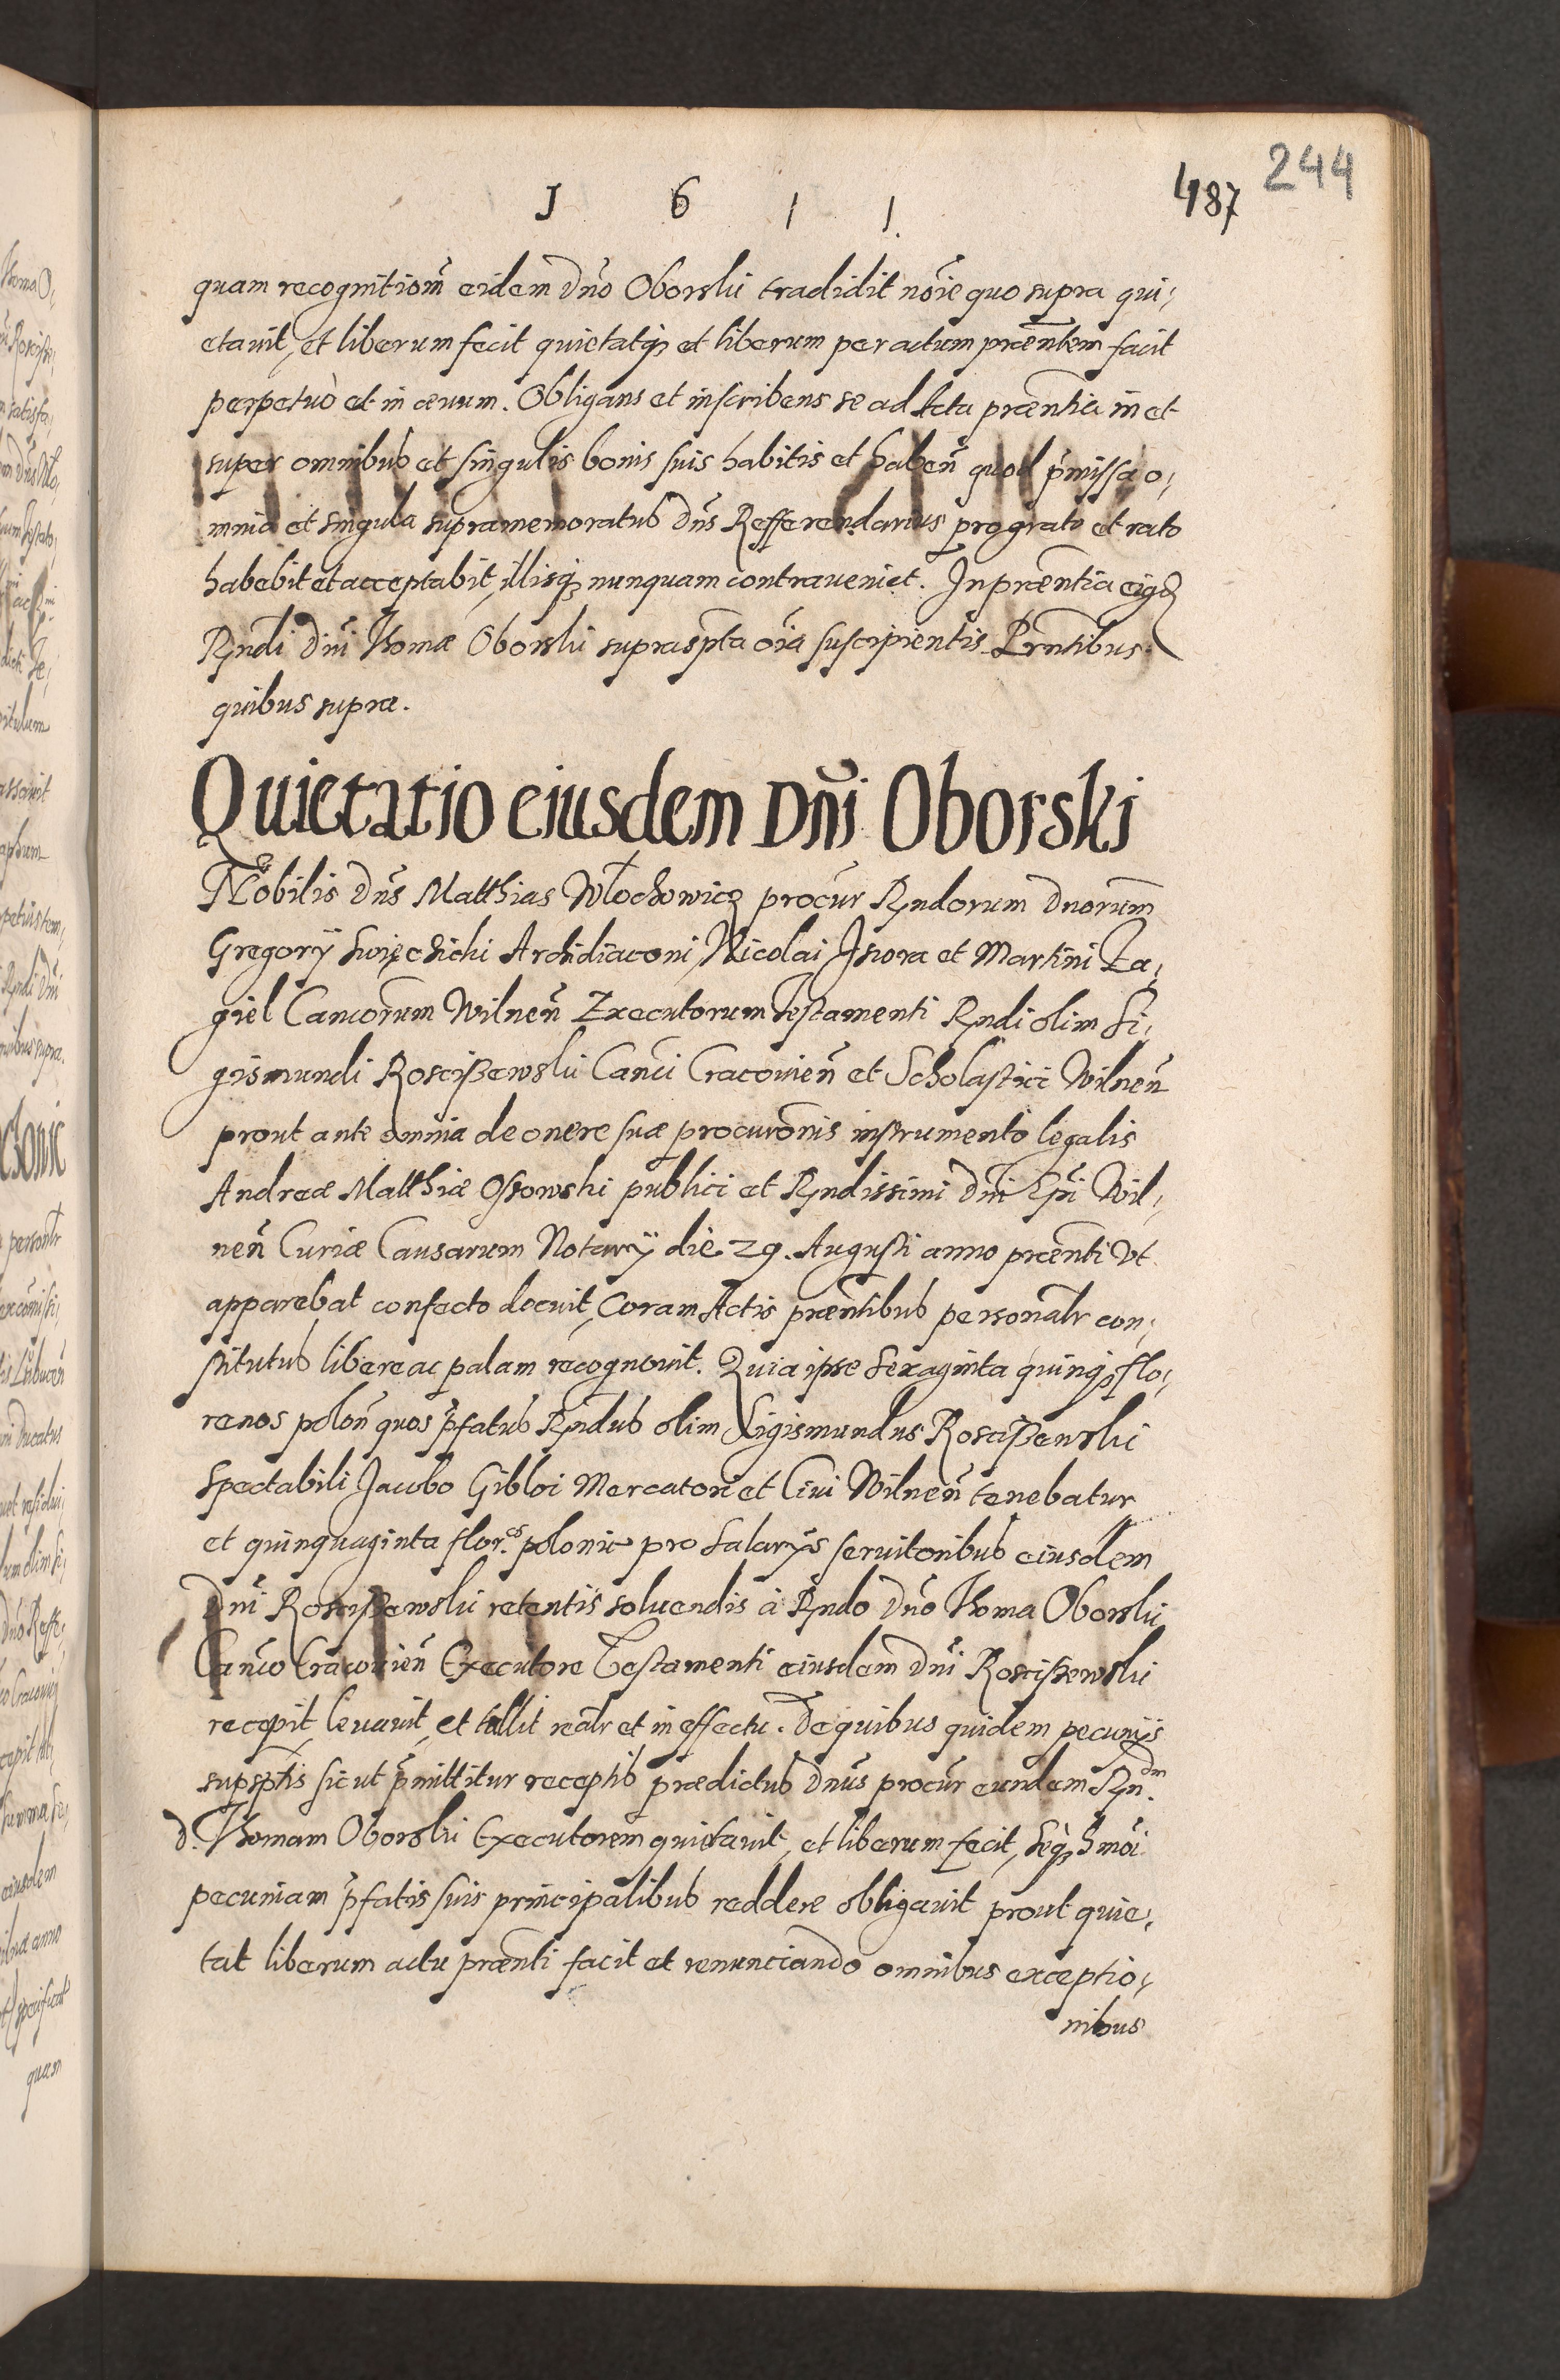 1 6 1 1.
487 244
quam recognitiom̃ eidem dño Oborski tradidit nõie quo supra qui,
etauit, et liberum fecit quietatq3 et liberum per actum præñtem facit
perpetuò et in æuum. Obligans et inscribens se ad Acta præñtia in et
super omnibus et singulis bonis suis habitis et habeñ quod p̃missa o,
mnia et singula supramemoratus dñs Refferendarius pro grato et rato
habebit et acceptabit, illisq3 nunquam contraueniet. In præñtia eigd
Rñdi Dñi Thomæ Oborski suprasp̃ta oĩa suscipientis. Prñtibus
quibus supra.
Quietatio eiusdem Dñi Oborski
Nobilis Dñs Matthias Włochowicz procũr Rñdorum Dnorum
Gregorÿ Swięchicki Archidiaconi, Nicolai Isora et Martini Za,
giel Cañcorum Wilneñ Executorum Testamenti Rñdi olim Si,
gismundi Roscißewski Cañci Cracouieñ et Scholastici Wilneñ
prout ante omnia de onere suæ procurõnis instrumento legalis
Andreæ Matthiæ Ossowski publici et Rñdissimi Dñi Ep̃i Wil,
neñ Curiæ Causarum Notarÿ die 29. Augusti anno præñti Vt
apparebat confecto docuit, Coram Actis præñtibus personalr con,
stitutus libere ac palam recognouit. Quia ipse Sexaginta quinq3 flo,
renos poloñ quos p̃fatus Rñdus olim Sigismundus Roscißewski
Spectabili Jacobo Gibloi Mercatori et Ciui Wilneñ tenebatur
et quinquaginta flor.os polonic pro Salarÿs seruitoribus eiusdem
Dñi Roscißewski retentis soluendis à Rñdo Dño Thoma Oborski
Cañco Cracouieñ Executore Testamenti eiusdem Dñi Roscißewski
recepit, leuauit, et tullit realr et in effectu. De quibus quidem pecunÿs
supsp̃tis sicut p̃mittitur receptis prædictus Dñus procũr eundem Rñ.dm
d. Thomam Oborski Executorem quietauit, et liberum fecit, Seq3 hmõi
pecuniam p̃fatis suis principalibus reddere obligauit prout quie,
tat liberum actu præñti facit et renunciando omnibus exceptio,
nibus